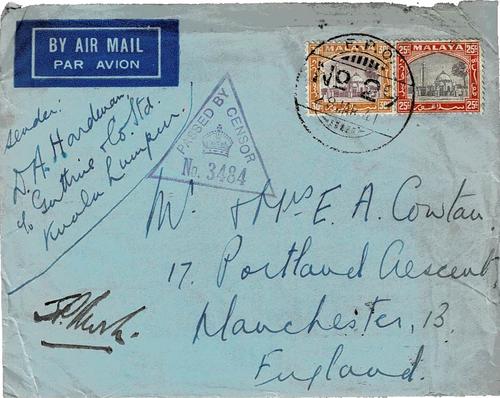 BY AIR MAIL
PAR AVION
MALAYA
MALAYA
25c 25c
25c 25c
PASSED BY CENSOR
No. 3484
sender:
D. A. Hardman,
c/o Guthrie & Co. Ltd.
Kuala Lumpur.
Mr. & Mrs E. A. Cowtan.
17. Portland Crescent,
Manchester, 13.
England.